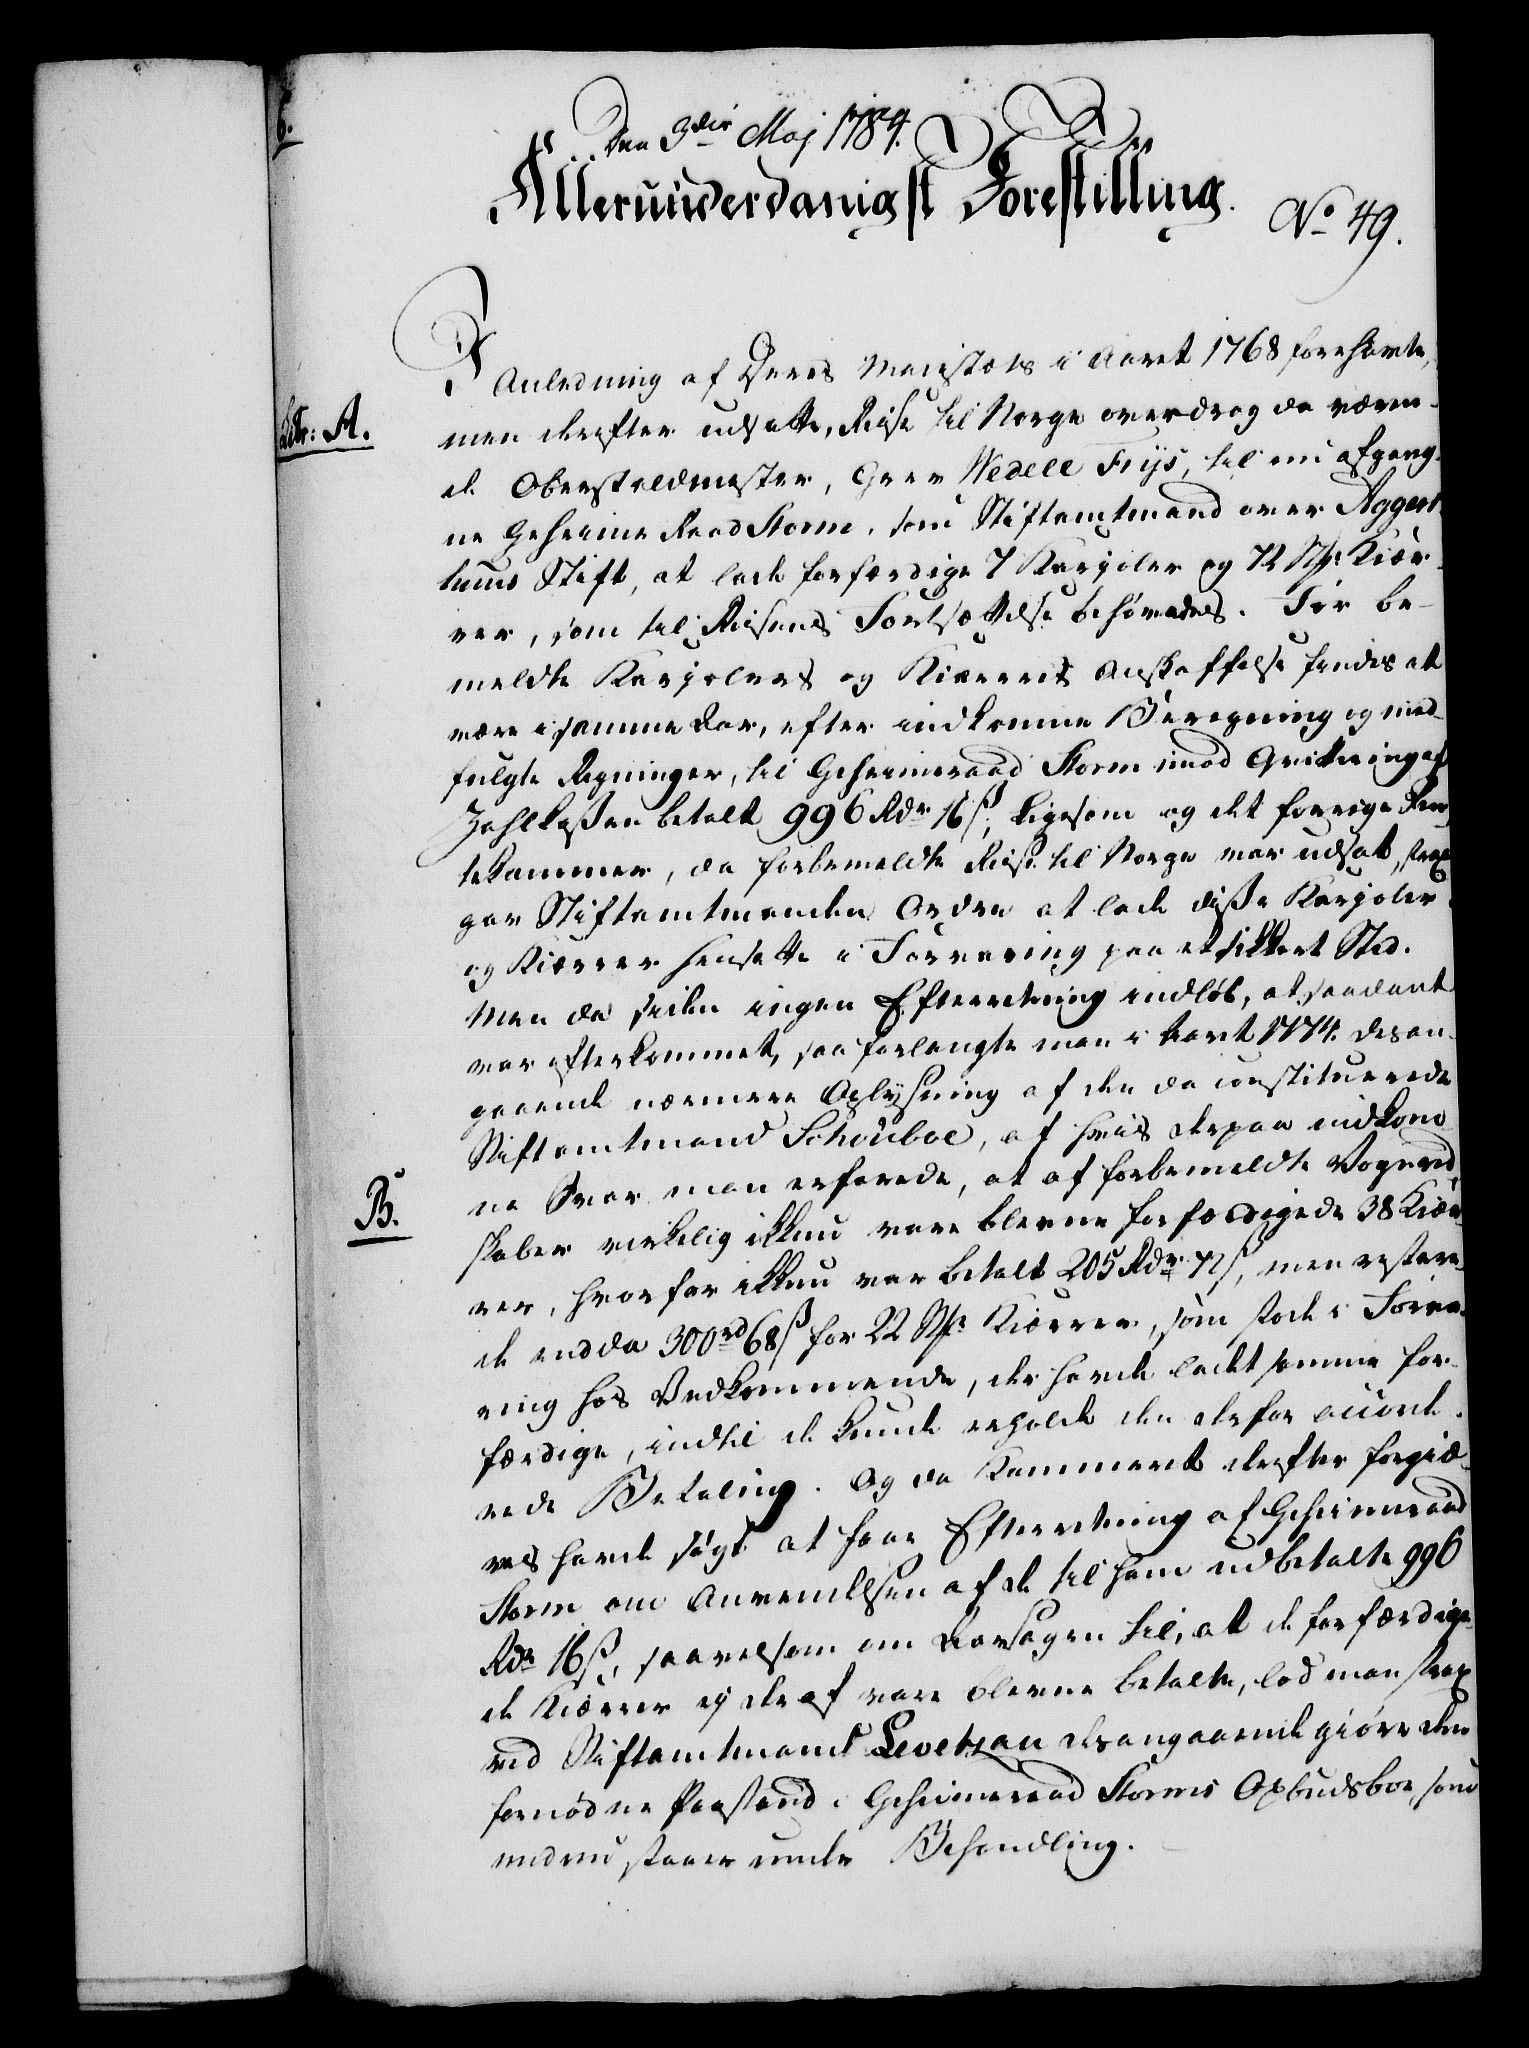 Den 3die Maj 1784.
Allerunderdanigst Forestilling.
No 49.
I Anledning af Deres Maiestæts i Aaret 1768 forehavte,
Litr: A.
men derefter udsatte, Reise til Norge overdrog da væren-
de Oberstaldmester, Grev Wedell Friis, til nu afgang-
ne Geheime Raad Storm, som Stiftamtmand over Aggers-
huus Stift, at lade forfærdige 7 Karioler og 72 Stk: Kiær-
rer, som til Reisens Fortsættelse behøvedes. For be-
meldte Kariolers og Kiærrers Anskaffelse findes at
være i samme Aar, efter indkomne Beregning og med-
fulgte Regninger, til Geheimeraad Storm imod Qvittering af
Zahlkaßen betalt 996 Rdr 16 ß, ligesom og det forrige Ren-
tekammer, da forbemeldte Reise til Norge var udsat, strax
gav Stiftamtmanden Ordre at lade diße Karioler
og Kiærrer hensætte i Forvaring paa et sikkert Sted.
Men da siden ingen Efterretning indløb, at saadant
var efterkommet, saa forlangte man i Aaret 1774. desan-
gaaende nærmere Oplysning af den da constituerede
Stiftamtmand Schouboe, af hvis derpaa indkom-
B.
ne Svar man erfarede, at af forbemeldte Vogned-
skaber virkelig ikkun vare blevne forfærdigede 38 Kiær-
rer, hvorfor ikkun var betalt 205 Rdr 72 ß, men restere-
de endda 300 rd 68 ß for 22 Stk: Kiærrer, som stode i Forva-
ring hos Vedkommende, der havde ladet samme for-
færdige, indtil de kunde erholde den derfor accorde-
rede Betaling. Og da Kammeret derefter forgiæ-
ves havde søgt at faae Efterretning af Geheimeraad
Storm om Anvendelsen af de til ham udbetalte 996
Rdr 16 ß, saavelsom om Aarsagen til, at de forfærdige-
de Kiærrer ej deraf vare blevne betalte, lod man strax
ved Stiftamtmand Levetzau desangaaende giøre den
fornødne Paastand i Geheimeraad Storms Opbudsboe, som
endnu staaer under Behandling.